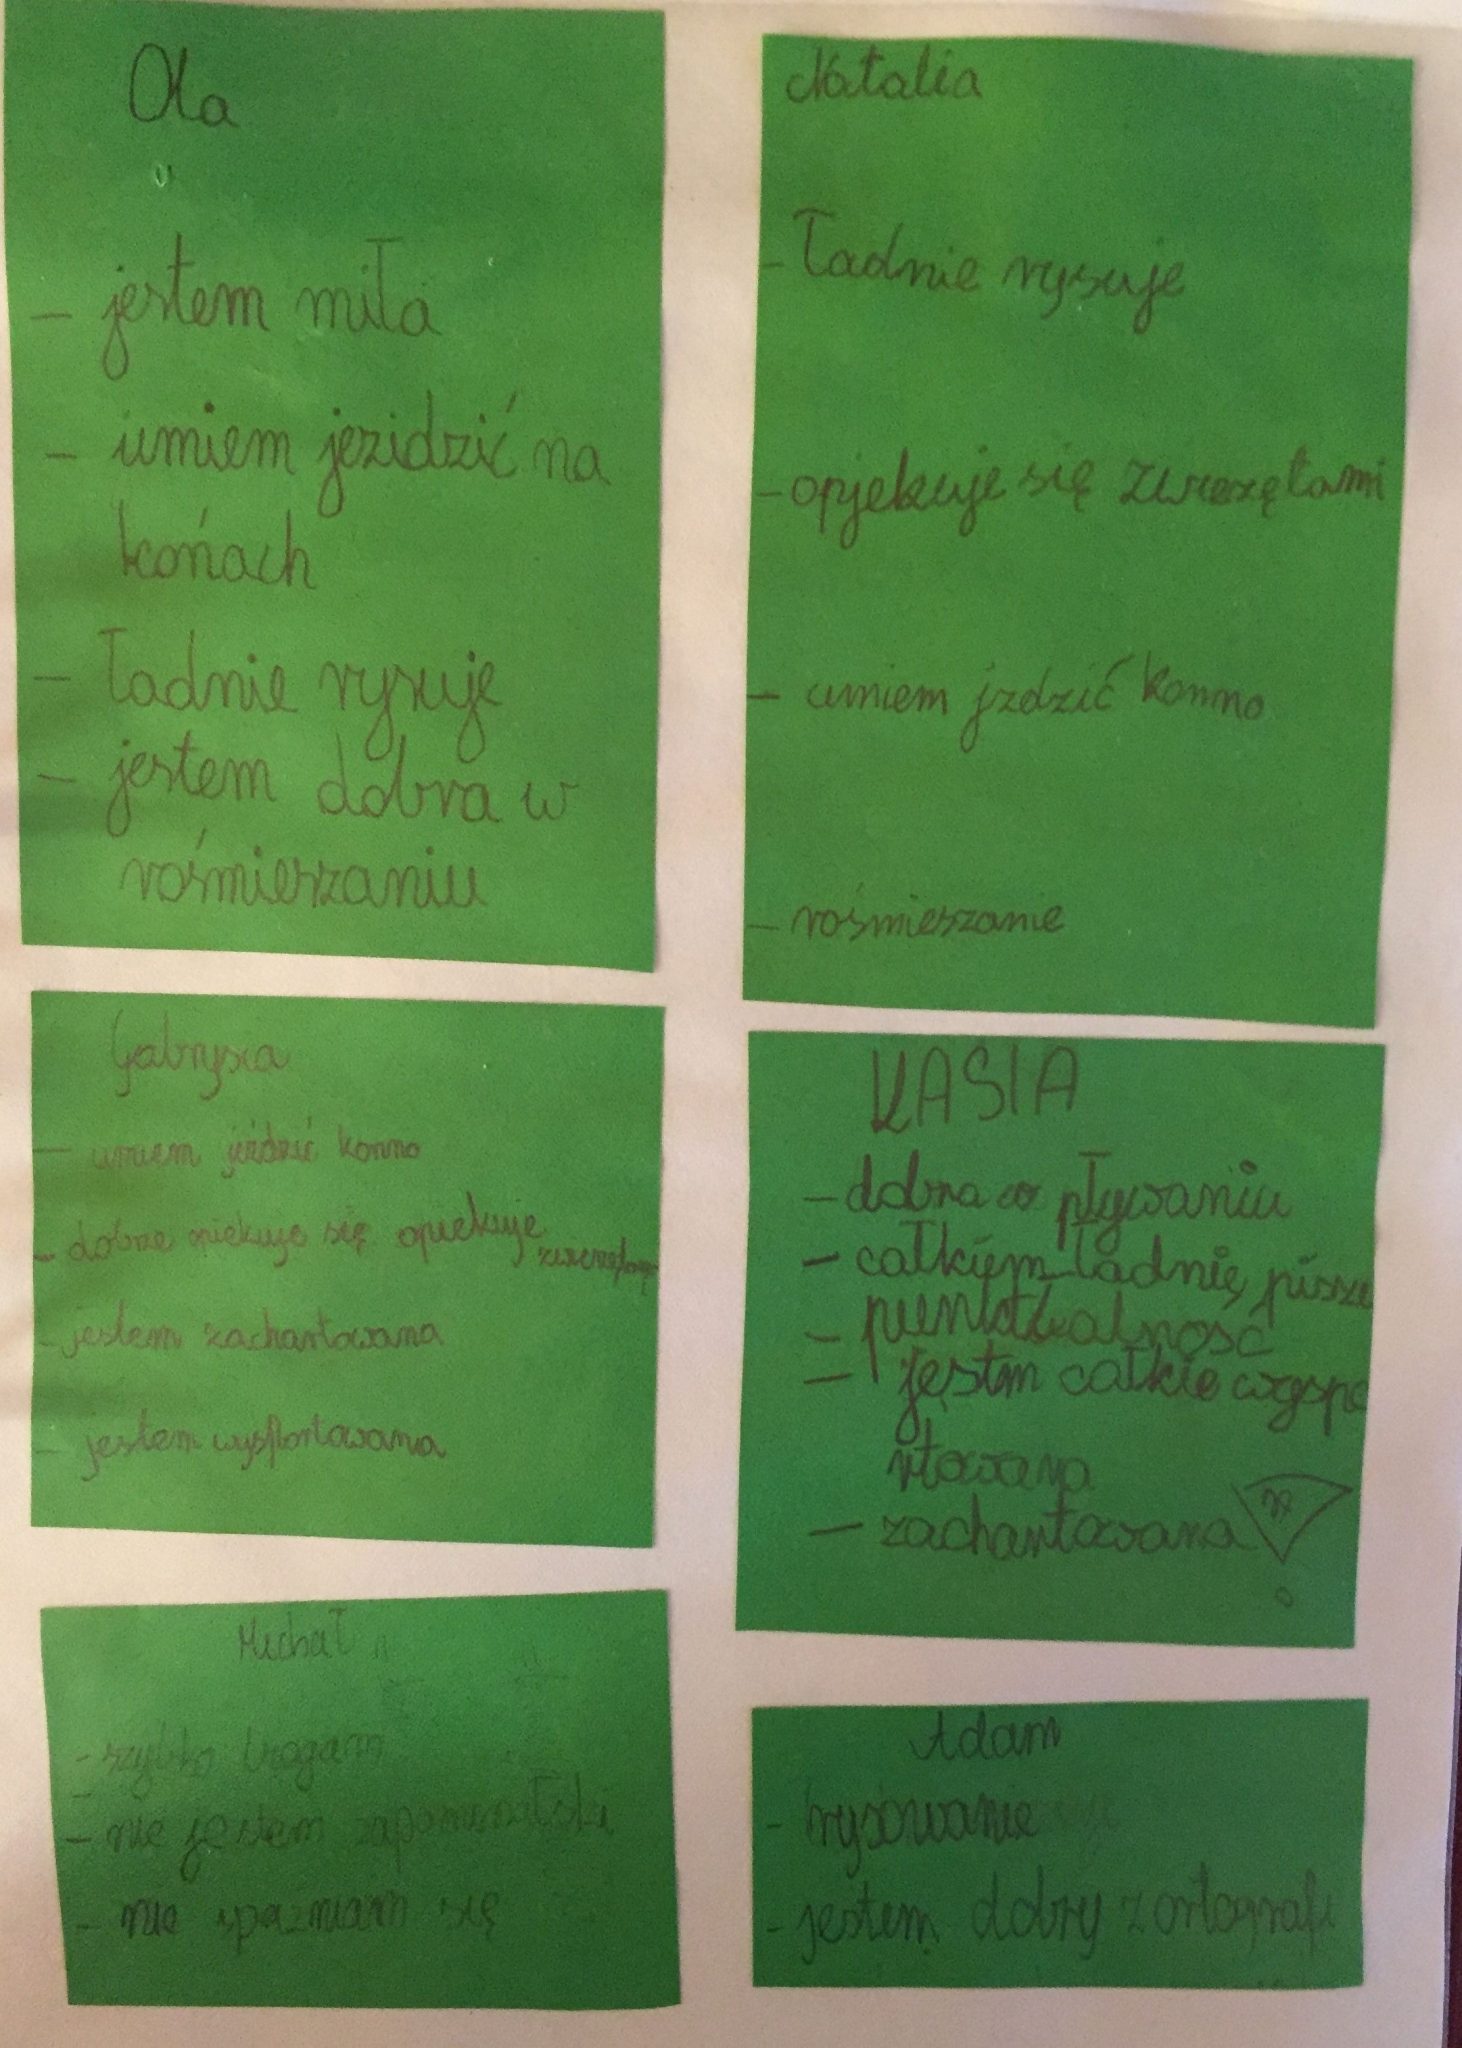 Ola
- jestem miła
- umiem jezidzić na
końach
- ładnie rysuję
- jestem dobra w
rośmieszaniu
Natalia
- Ładnie rysuje
- opjekuje się zwierzętami
- umiem jzdzić konno
- rośmieszanie
Gabrysia
- umiem jeździć konno
- dobrze opiekuje się opiekuje
- jestem zachartowana
- jestem wysportowana
KASIA
- dobra w pływaniu
- całkiem ładnię pisze
- punktualność
- jęstm całkie wyspo
rtowana
- zachartowana
Michał
- szybko biegam
- nie jestem
- nie spazniam się
Adam
- rysowanie
- jestem dobry z ortografi